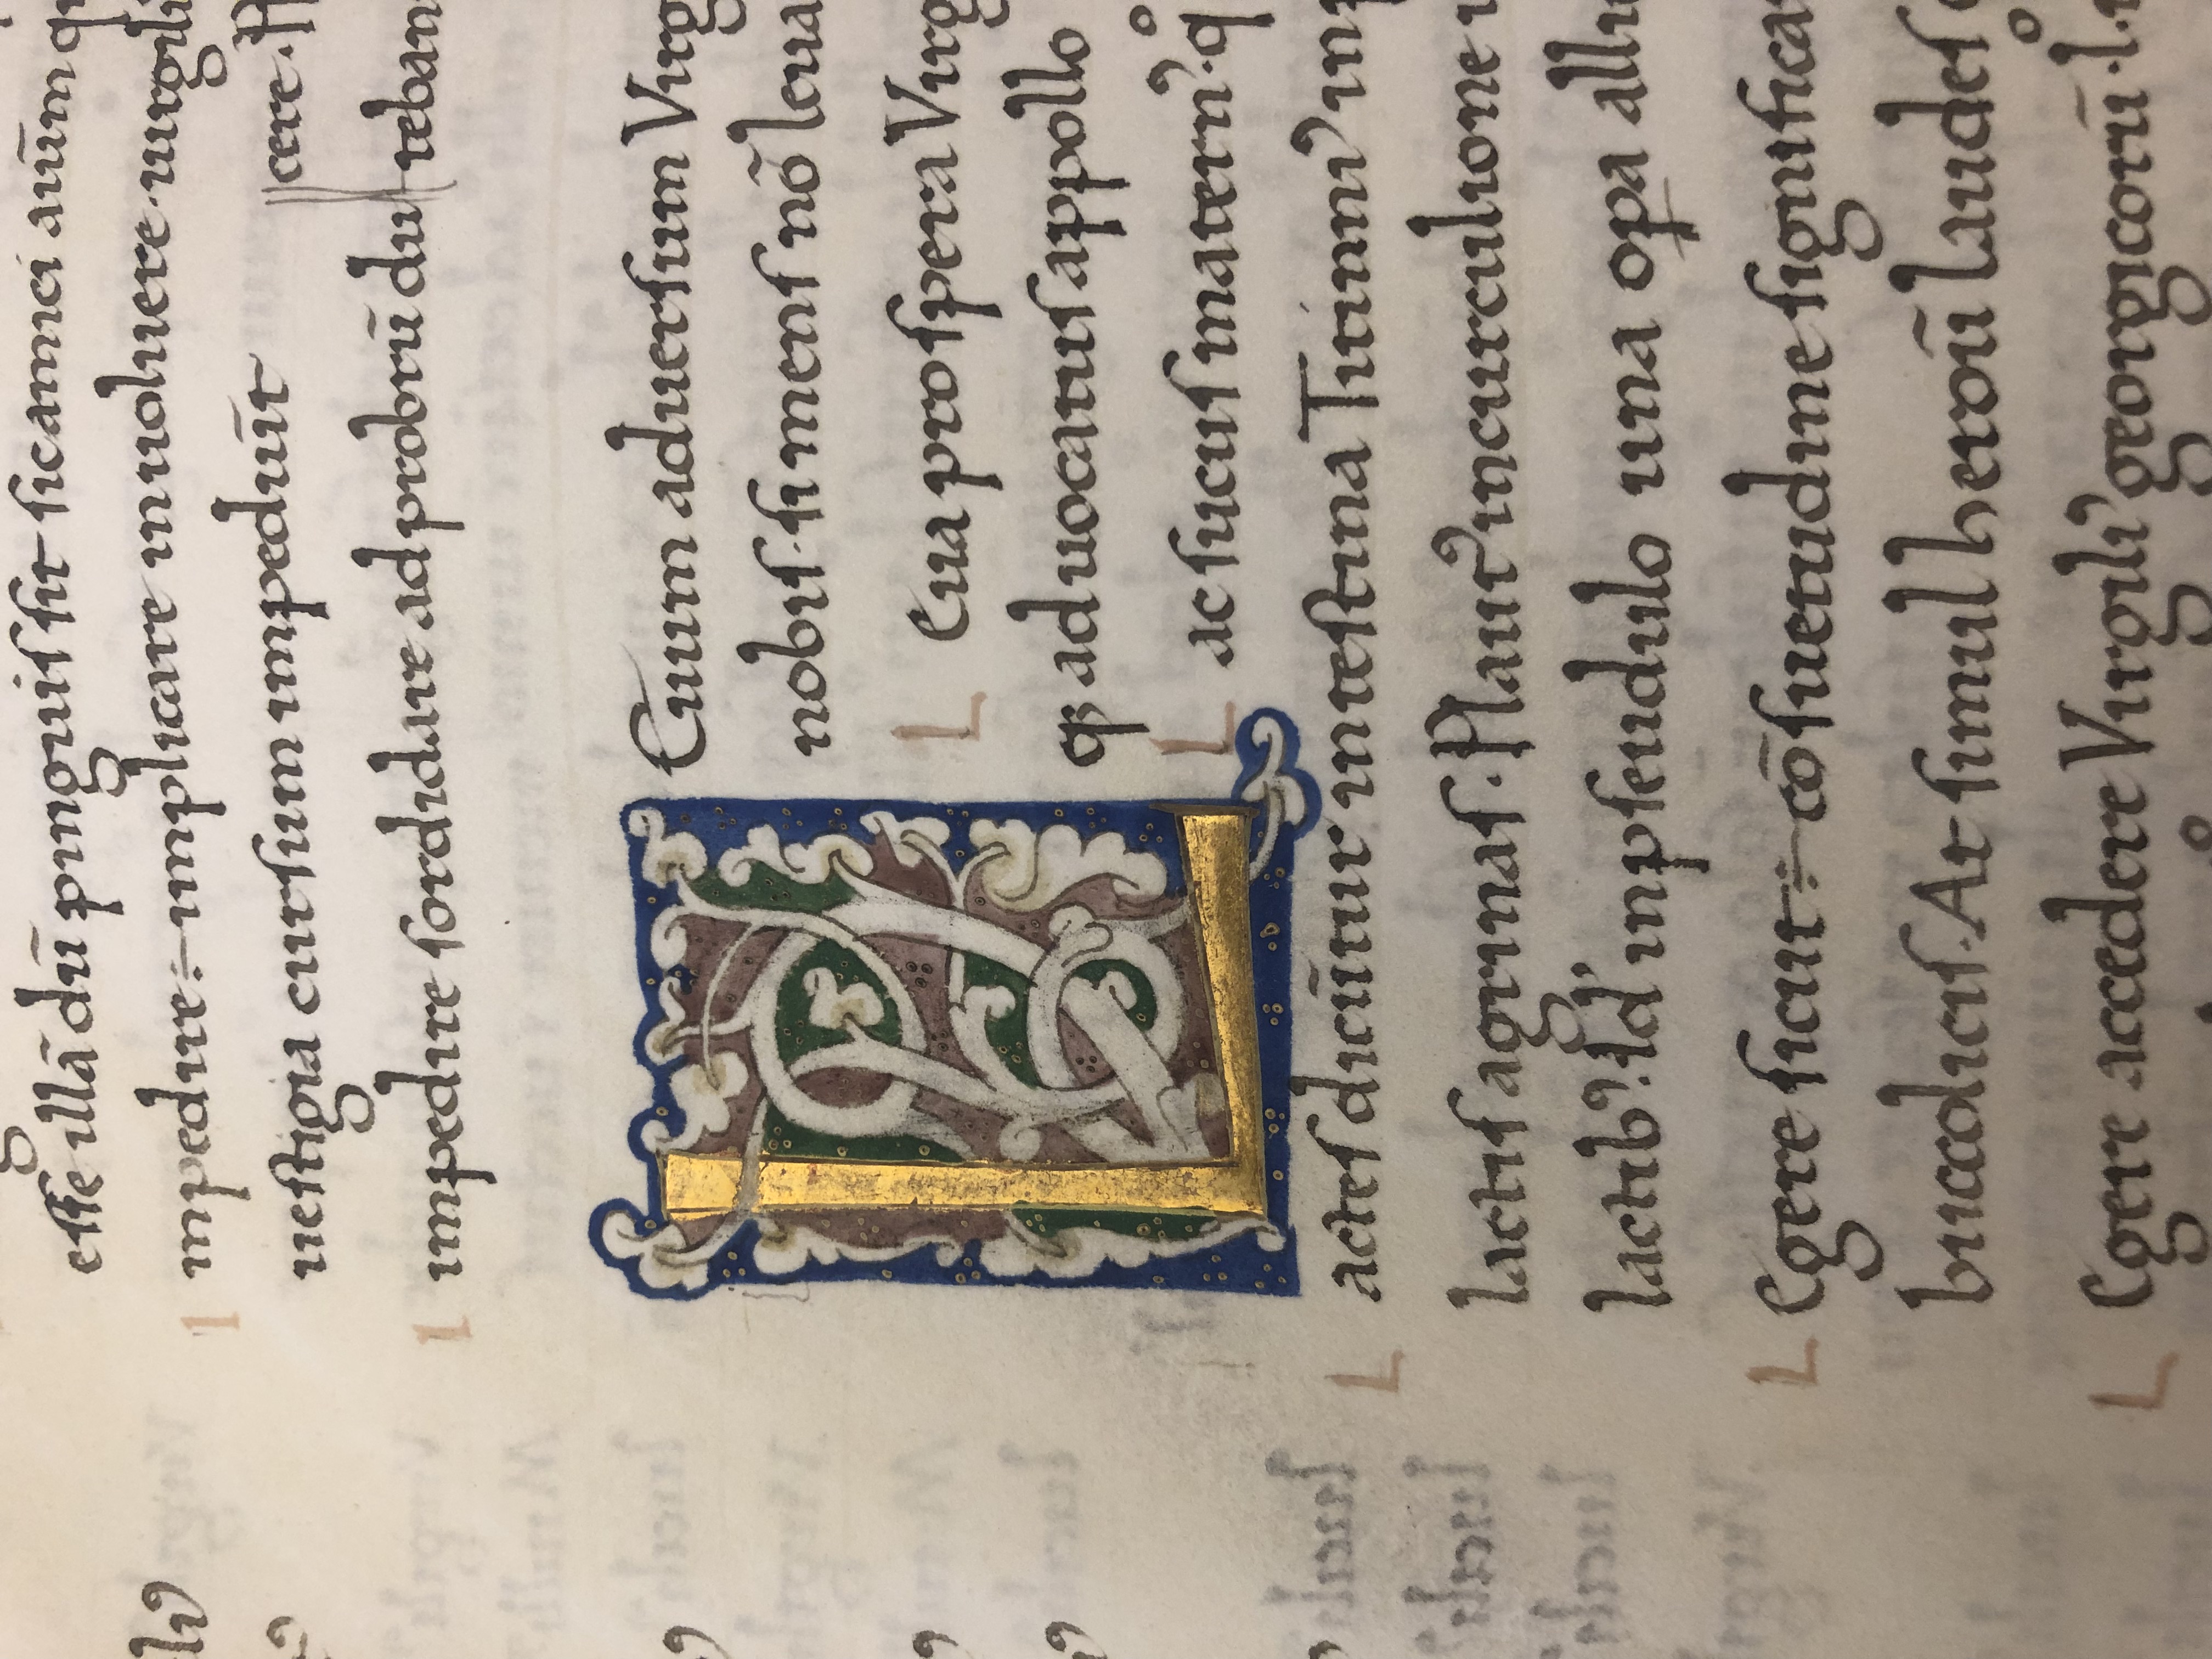 esse illã dũ pinguis sit sicamnei aũm
impedire ÷ implicare inuoluere. uirgili
uestigia cursum impediũt
cere.
impedire sordidare ad probrũ du rebam
Euum aduersum Virg
nobis. si mens nõ leua
Eua prospera Virg
qꝫ aduocatus appollo
ac sucus matern᾽. q
actes dicũtur intestina Titinni᾽ in p
lactis agninas. Plaut᾽ incurculione
lactibꝰ. Id᾽ inpseudulo una oꝑa alli
Egere sicut ÷ cõsuetudine significa
bucolicis. At simul heroũ laudes
Egere accedere Virgili᾽ georgicorũ. l.